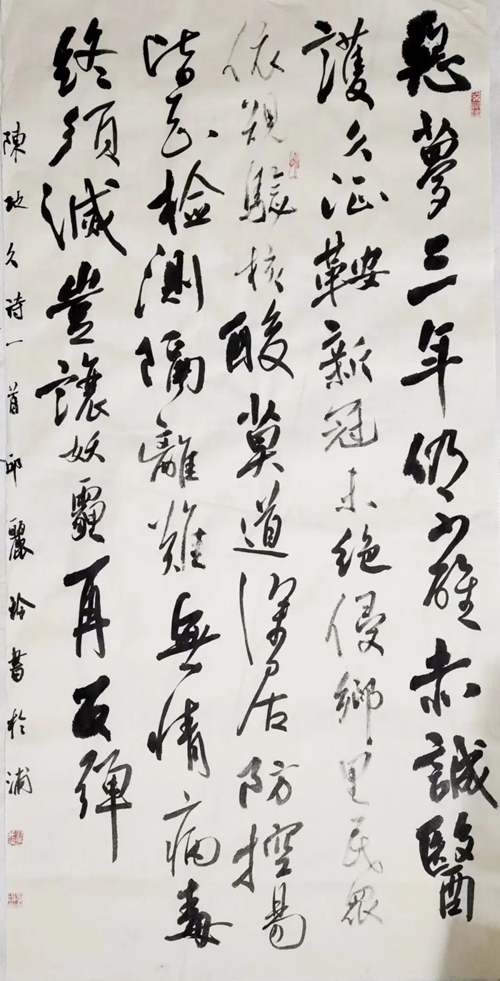 惡夢三年仍不醒赤誠醫
護久征鞍新冠未絶侵鄉里民眾
依規驗核酸莫道深居防控易
皆知檢測隔離難無情病毒
終須滅豈讓妖再反彈
陳久詩一首邱麗玲書於浦